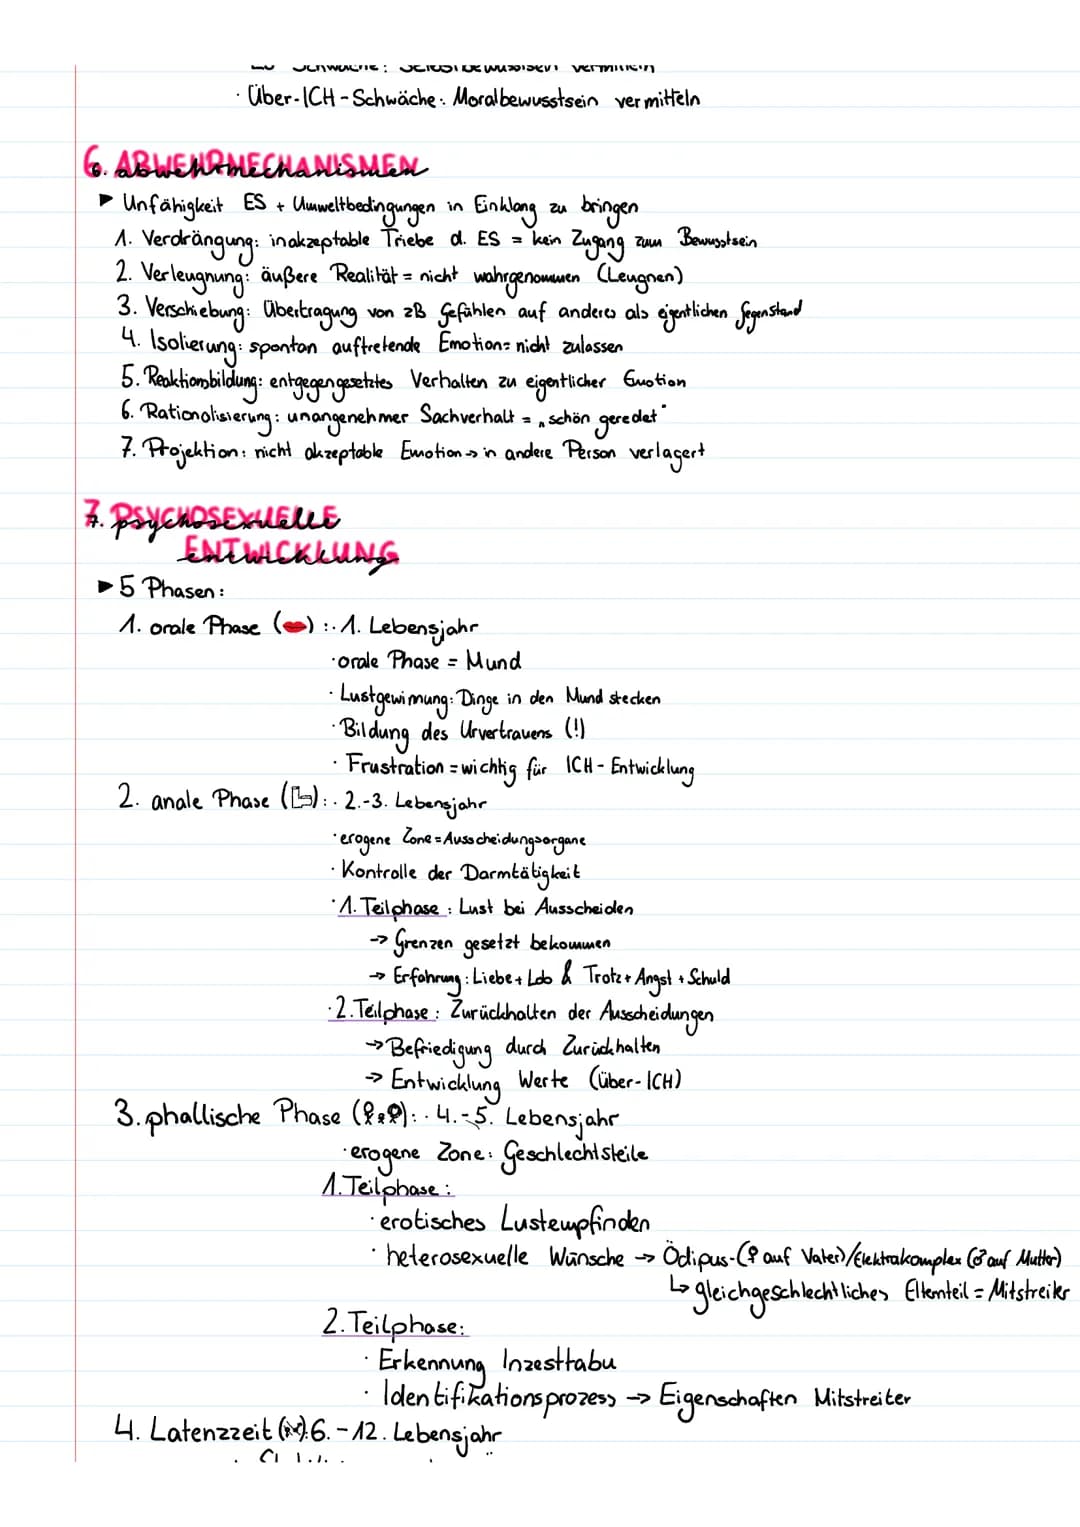 Schwäche: Selbstbewusstsein vermitteln
· Über-ICH-Schwäche: Moralbewusstsein vermitteln
6. ABWEHRMECHANISMEN
6. abwehrmechanismen
▶ Unfähigkeit ES + Umweltbedingungen in Einklang zu bringen
1. Verdrängung: inakzeptable Triebe d. ES = kein Zugang zum Bewusstsein
2. Verleugnung: äußere Realität = nicht wahrgenommen (Leugnen)
3. Verschiebung: Übertragung von zB Gefühlen auf anderes als eigentlichen Gegenstand
4. Isolierung: spontan auftretende Emotion = nicht zulassen
5. Reaktionsbildung: entgegengesetztes Verhalten zu eigentlicher Emotion
6. Rationalisierung: unangenehmer Sachverhalt = „schön geredet"
7. Projektion: nicht akzeptable Emotion → in andere Person verlagert
7. PSYCHOSEXUELLE
7. psychosexuelle
ENTWICKLUNG
entwicklung
▶ 5 Phasen:
1. orale Phase (👄): · 1. Lebensjahr
· orale Phase = Mund
· Lustgewinnung: Dinge in den Mund stecken
· Bildung des Urvertrauens (!)
· Frustration = wichtig für ICH-Entwicklung
2. anale Phase (): · 2.-3. Lebensjahr
· erogene Zone = Ausscheidungsorgane
· Kontrolle der Darmtätigkeit
· 1. Teilphase: Lust bei Ausscheiden
→ Grenzen gesetzt bekommen
→ Erfahrung: Liebe + Lob & Trotz + Angst + Schuld
· 2. Teilphase: Zurückhalten der Ausscheidungen
→ Befriedigung durch Zurückhalten
→ Entwicklung Werte (über-ICH)
3. phallische Phase (): · 4.-5. Lebensjahr
· erogene Zone: Geschlechtsteile
1. Teilphase:
· erotisches Lustempfinden
· heterosexuelle Wünsche → Ödipus-(♀ auf Vater)/Elektrakomplex (♂ auf Mutter)
↳ gleichgeschlechtliches Elternteil = Mitstreiter
2. Teilphase:
· Erkennung Inzesttabu
· Identifikationsprozess → Eigenschaften Mitstreiter
4. Latenzzeit (): 6.-12. Lebensjahr